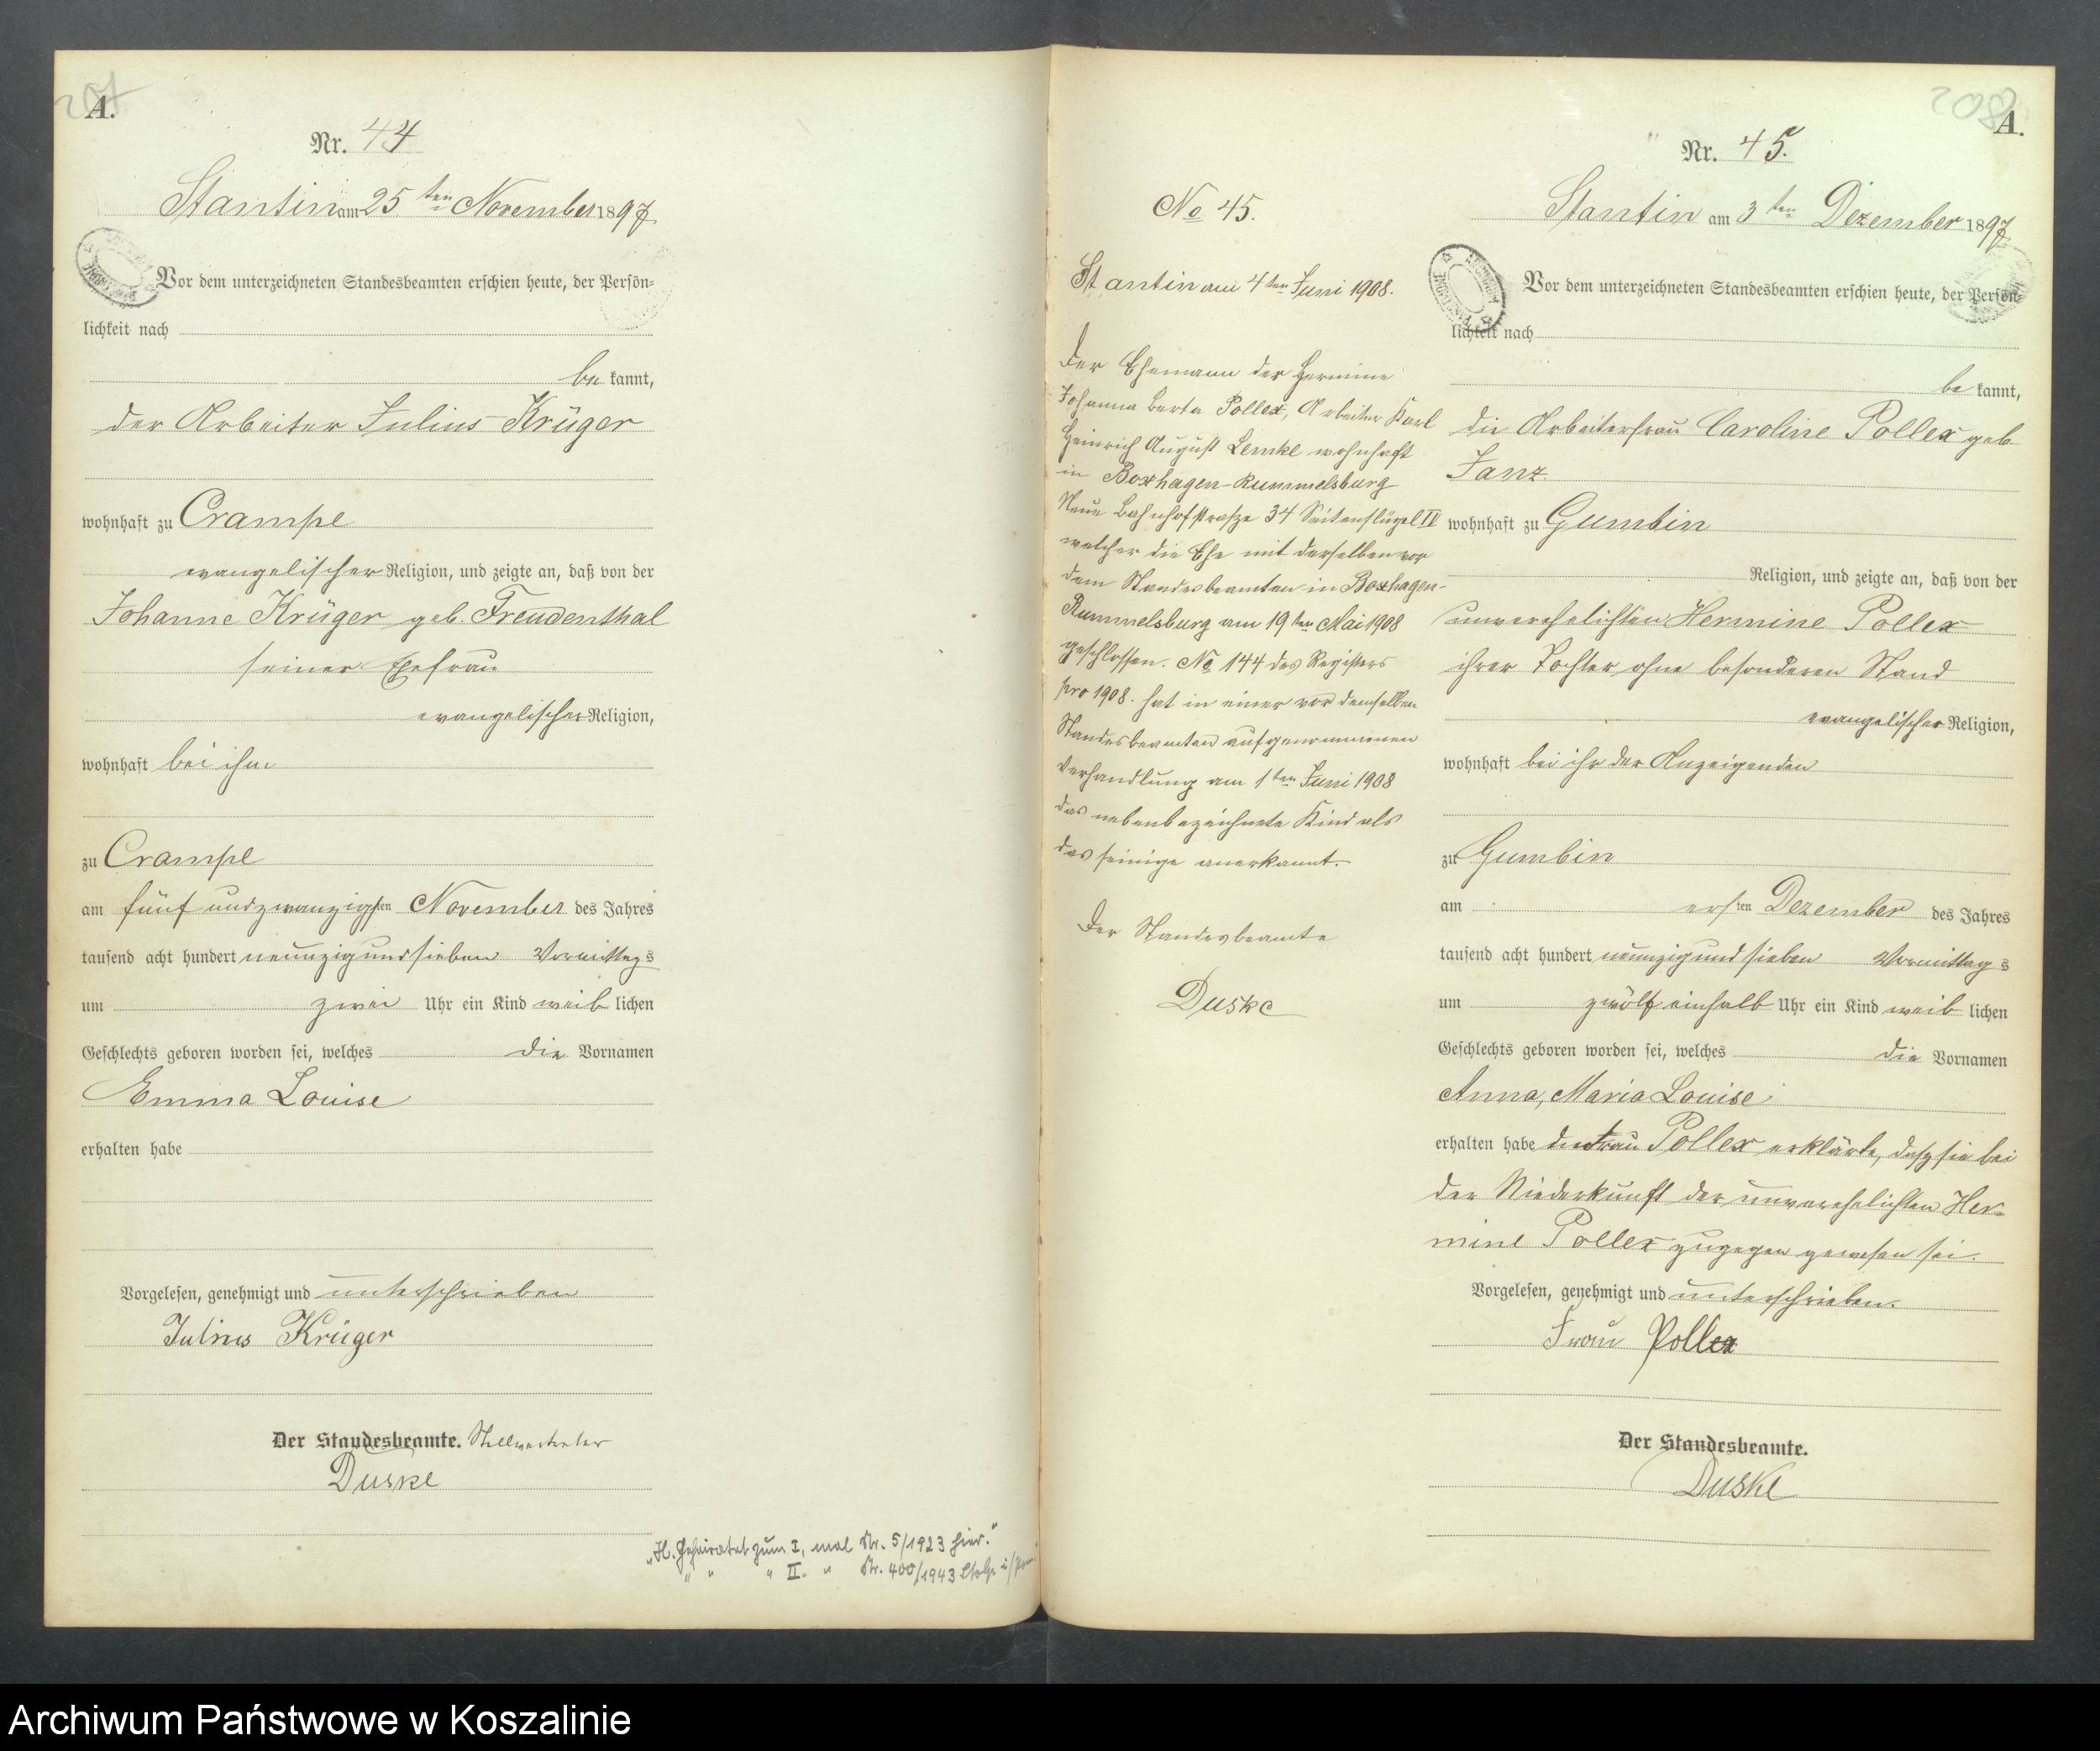 207
A.
Nr. 44
Stantin am 25 ten November 1897
Vor dem unterzeichneten Standesbeamten erschien heute, der Persön=
lichkeit nach
be kannt,
der Arbeiter Julius Krüger
wohnhaft zu Crampe
evangelischer Religion, und zeigte an, daß von der
Johanne Krüger geb. Freudenthal
seiner Ehefrau
evangelischer Religion,
wohnhaft bei ihm
zu Crampe
am fünf und zwanzigsten November des Jahres
tausend acht hundert neunzig und sieben Vormittags
um zwei Uhr ein Kind weiblichen
Geschlechts geboren worden sei, welches die Vornamen
Emma Louise
erhalten habe
Vorgelesen, genehmigt und unterschrieben
Julius Krüger
Der Standesbeamte. Stellvertreter
Duske
"H. Geheiratet zum I. mal Nr. 5/1923 hier."
" " " II. " Nr. 400/1943 Stolp i/Pom
No 45.
Stantin am 4ten Juni 1908.
Der Ehemann der Hermine
Johanna Berta Pollex, Arbeiter Karl
Heinrich August Lemke wohnhaft
in Boxhagen-Rummelsburg
Neue Bahnhofstraße 34 Seitenflügel IV
welcher die Ehe mit derselben vor
dem Standesbeamten in Boxhagen-
Rummelsburg am 19ten Mai 1908
geschlossen. No 144 des Registers
pro 1908. hat in einer vor demselben
Standesbeamten aufgenommenen
Verhandlung am 1ten Juni 1908
das nebenbezeichnete Kind als
das seinige anerkannt.
Der Standesbeamte
Duske
208
A.
Nr. 45.
Stantin am 3 ten Dezember 1897
Vor dem unterzeichneten Standesbeamten erschien heute, der Persön=
lichkeit nach
be kannt,
die Arbeiterfrau Caroline Pollex geb
Janz
wohnhaft zu Gumbin
Religion, und zeigte an, daß von der
unverehelichten Hermine Pollex
ihrer Tochter, ohne besonderen Stand
evangelischer Religion,
wohnhaft bei ihr der Anzeigenden
zu Gumbin
am ersten Dezember des Jahres
tausend acht hundert neunzig und sieben Vormittags
um zwölf einhalb Uhr ein Kind weiblichen
Geschlechts geboren worden sei, welches die Vornamen
Anna, Maria Louise
erhalten habe die Frau Pollex erklärte, daß sie bei
der Niederkunft der unverehelichten Her=
mine Pollex zugegen gewesen sei.
Vorgelesen, genehmigt und unterschrieben.
Frau Pollex
Der Standesbeamte.
Duske
Archiwum Państwowe w Koszalinie